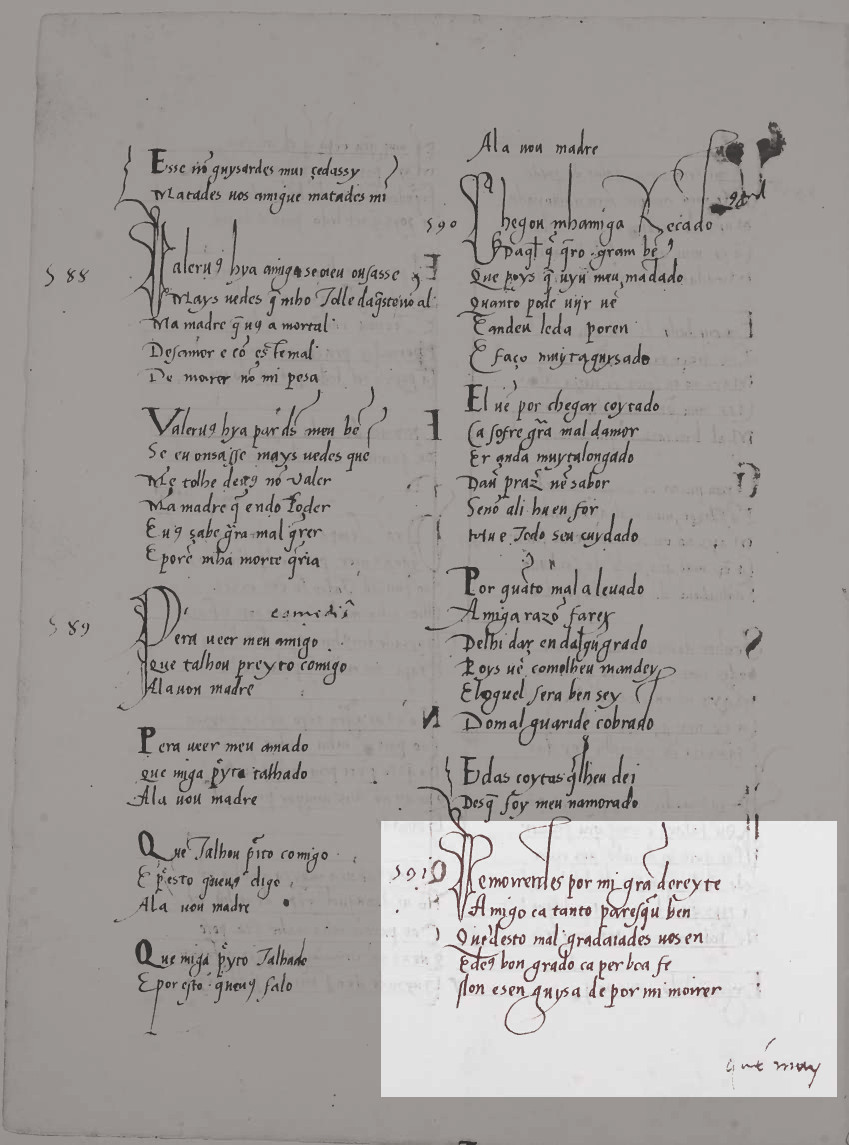 Esse nō guysardes mui çedassy
Matades uos amigue matades mi
588
Valerus hya amiga se meu ousasse
Mays uedes q̄ mho Tolle daq̄sto nō al
Ma madre q̄ us a mortal
Desamor e cō esTemal
De morrer nō mi pesa
Valerus hya par ds meu bē
Se eu ousasse mays uedes que
Me tolhe deus nō valer
Ma madre q̄ endo Poder
E us sabe grā mal q̄rer
E porē mha morte q̄ria
589
Pera ueer meu amigo
Que talhou preyto comigo
Ala uou madre
Pera ueer meu amado
Que miga p̄yto talhado
Ala uou madre
Que Talhou p̄ito comigo
E p̄esto q̄ uus digo
Ala uou madre
Que miga p̄yto Talhado
E por esto q̄ uus falo
Ala uou madre
590
Chegou mhamiga Recado
Daql̄ q̄ q̄ro gram bē
Que poys q̄ uyu meu mādado
Quanto pode uijr uē
E andeu leda poren
E faço muyt aguysado
El uē por chegar coytado
Ca sofre grā mal damor
Er anda muytalongado
Dau' praz' nē sabor
Senō ali hu en for
Hu e Todo seu cuydado
Por quāto mal a leuado
Amiga razō farey
Delhi dar endalgū grado
Poys uē comolheu mandey
E loguel sera ben sey
Do mal guaride cobrado
E das coytas q̄lheu dei
Desq̄ foy meu namorado
591
Demorrerdes por mi grā dereyte
Amigo ca tanto paresq̄u ben
Que desto mal gradaiades uos en
E deus bon grado ca per boa fe
Non e sen guysa de por mi moirer
que may